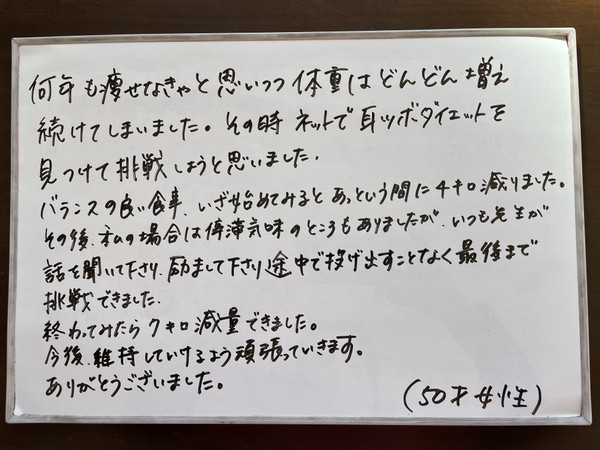 何年も痩せなきゃと思いつつ体重はどんどん増え
続けてしまいました。その時ネットで耳ツボダイエットを
見つけて挑戦しようと思いました。
バランスの良い食事、いざ始めてみるとあっという間に4キロ減りました。
その後、私の場合は停滞気味のところもありましたが、いつも先生が
話を聞いて下さり、励まして下さり途中で投げ出すことなく最後まで
挑戦できました。
終わってみたら 7キロ減量できました。
今後、維持していけるよう頑張っていきます。
ありがとうございました。
(50才女性)